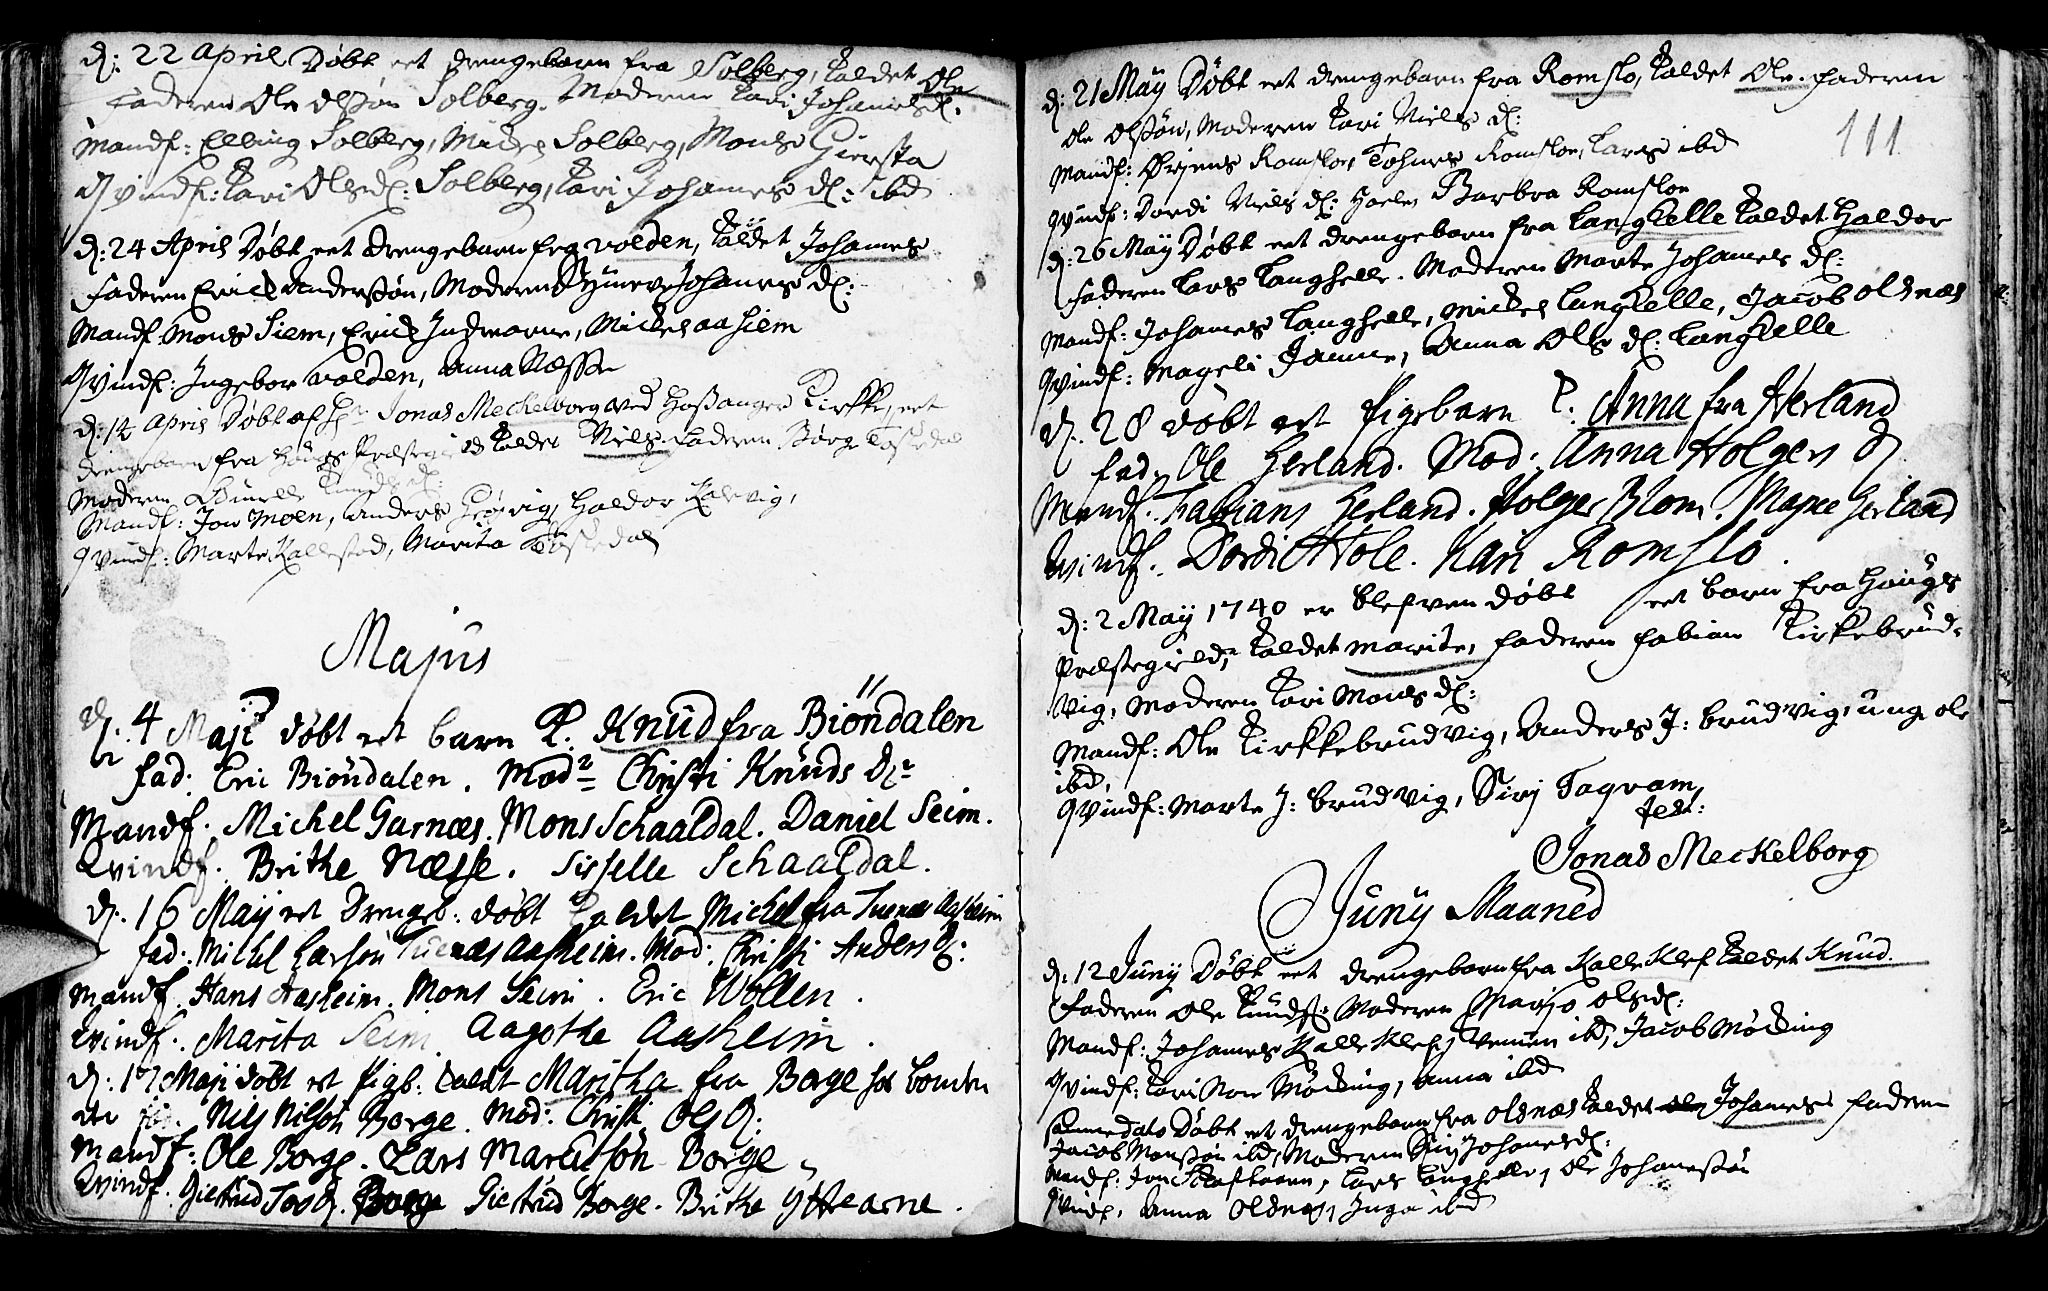 d: 22 April Døbt eet drengebarn fra Solberg, kaldet Ole
Faderen Ole Olssøn Solberg. Moderen Kari Johannesd:
Mandf: Elling Solberg, Mickel Solberg, Mons Giersta
Qvindf: Kari Olsd: Solberg, Kari Johannes d: ibd
d: 24 April Døbt eet drengebarn fra volden, kaldet Johannes
Faderen Erick Anderssøn, Moderen Synneve Johannes d:
Mandf: Mons Siem, Erick Indrearne, Mickel aasiem
Qvindf: Ingebor volden, Anna Næsse
d: 14 April Døbt af Hr Jonas Meckelborg ved Hossanger Kirkke, eet
drengebarn fra Houges Præstegield kaldet Niels. Faderen Børge
Moderen Knuds d:
Mandf: Jon Moen, Anders Haldor Kalvig,
Qvindf: Marte Kallested, Marita
Majus
d. 4 Maji døbt eet barn k. Knud fra Biöndalen
fad: Eric Biöndalen. Modr Christi Knuds Dr
Mandf. Michel Garnæs. Mons Schaaldal. Daniel Seim.
Qvindf. Brithe Næsse. Sisselle Schaaldal.
d. 16 Maij eet Drengeb: døbt kaldet Michel fra Tuenæs Aasheim
fad: Michel Larsøn Tuenæs Aasheim. Mod: Christi Anders d:
Mandf. Hans Aasheim. Mons Seim. Eric Wollen.
Qvindf. Marita Seim Aagothe Aasheim.
d: 17 Maji døbt et Pigb: kaldt Maritha fra Borge
fad. Nils Nilsøn Borge. Mod: Christi Ols D:
Mandf: Ole Borge. Lars Marcussøn Borge
Qvindf. Giertrud Borge Giertrud Borge. Brithe Ytrearne.
111
d: 21 Maÿ Døbt eet drengebarn fra Romslo, kaldet Ole. Faderen
Ole Olssøn, Moderen Kari Niels d:
Mandf: Ørjens Romsloe, Johnes Romsloe, Lars ibd
Qvindf: Dordi Niels d: Barbra Romsloe
d: 26 Maÿ Døbt eet drengebarn fra Langhelle kaldet Haldor
Faderen Lars Langhelle. Moderen Marte Johannes d:
Mandf: Johannes Langhelle, Mickel Langhelle, Jacob Olsnæs
Qvindf: Mageli Janne, Anna Ols d: Langhelle
d. 28 døbt eet Pigebarn k. Anna fra Herland
fad. Ole Herland. Mod: Anna Holgers d
Mandf. Fabians Herland. Holger Blom. Magne Herland
Qvindf. Dordi Hole. Kari Romslo.
d: 2 Maÿ 1740 er blefven døbt eet barn fra Houges
Præstegield, kaldet Marite, Faderen Fabian Kirkebrud-
vig, Moderen Kari Mons d:
Mandf: Ole Kirkkebrudvig, Anders J: brudvig, unge Ole
ibd,
Qvindf: Marte J: brudvig, Siri Tagvam,
test:
Jonas Meckelborg
Junÿ Maaned
d. 12 Junÿ Døbt eet drengebarn fra Kalleklef kaldet Knud.
Faderen Ole Knuds: Moderen Marjo Olsd:
Mandf: Johannes Kalleklef, ibd, Jacob Møcking
Qvindf: Kari Møcking, Anna ibd
Samme dato Døbt et drengebarn fra Olsnæs kaldet Johannes Faderen
Jacob Monssøn ibd, Moderen Siri Johannesd:
Mandf: Jon Lars Langhelle, Ole Johannessøn
Qvindf: Anna Olsnæs, Inga ibd